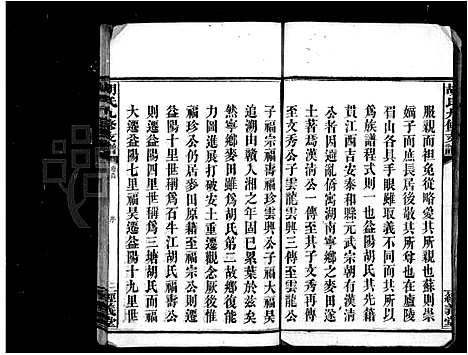 胡氏九修支譜
服親而袒免從略愛其所親也蘇則崇
嫡子而庶長居後敬其所尊也在廬陵
蜀山各具手眼雖取義不同而皆可以
為族譜程式則一也益陽胡氏其先籍
貫江西吉安泰和縣元武宗朝有漢清
公者因避亂偕寓湖南寧鄉之麥田遂
世焉為漢清公一傳至其子文秀再傳
至其孫文秀公子雲龍雲興雲龍公
經義堂
胡氏九修支譜
卷首
序
子福宗福壽福珍雲興公子福大福吳
追溯由贛入湘之年固已累葉於茲矣
然寧鄉麥田雖為胡氏第二故鄉復能
力圖進展打破安土重遷觀念厥後惟
福珍公仍居麥田原籍至福宗公則遷
益陽十里世稱為石牛江胡氏福壽公
則遷益陽四里世稱為三塘胡氏而福
大遷益陽七里福吳遷益陽十九里世
二
經義堂